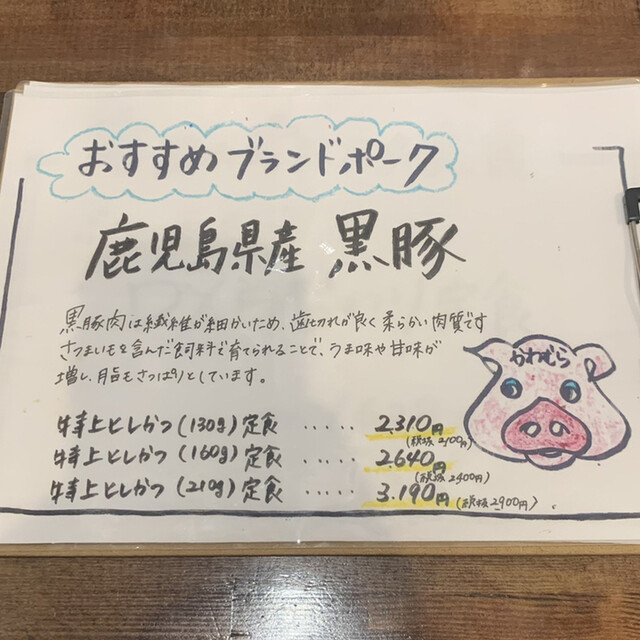 おすすめブランドポーク
鹿児島県産 黒豚
黒豚肉は繊維が細かいため、歯切れが良く柔らかい肉質です
さつまいもを含んだ飼料で育てられることで、うま味や甘味が
増し、脂もさっぱりとしています。
かわむら
特上とんかつ(130g)定食 ‥‥‥ 2,310円
(税抜 2,100円)
特上とんかつ(160g)定食 ‥‥‥ 2,640円
(税抜 2400円)
特上とんかつ(210g)定食 ‥‥‥ 3,190円(税抜2900円)